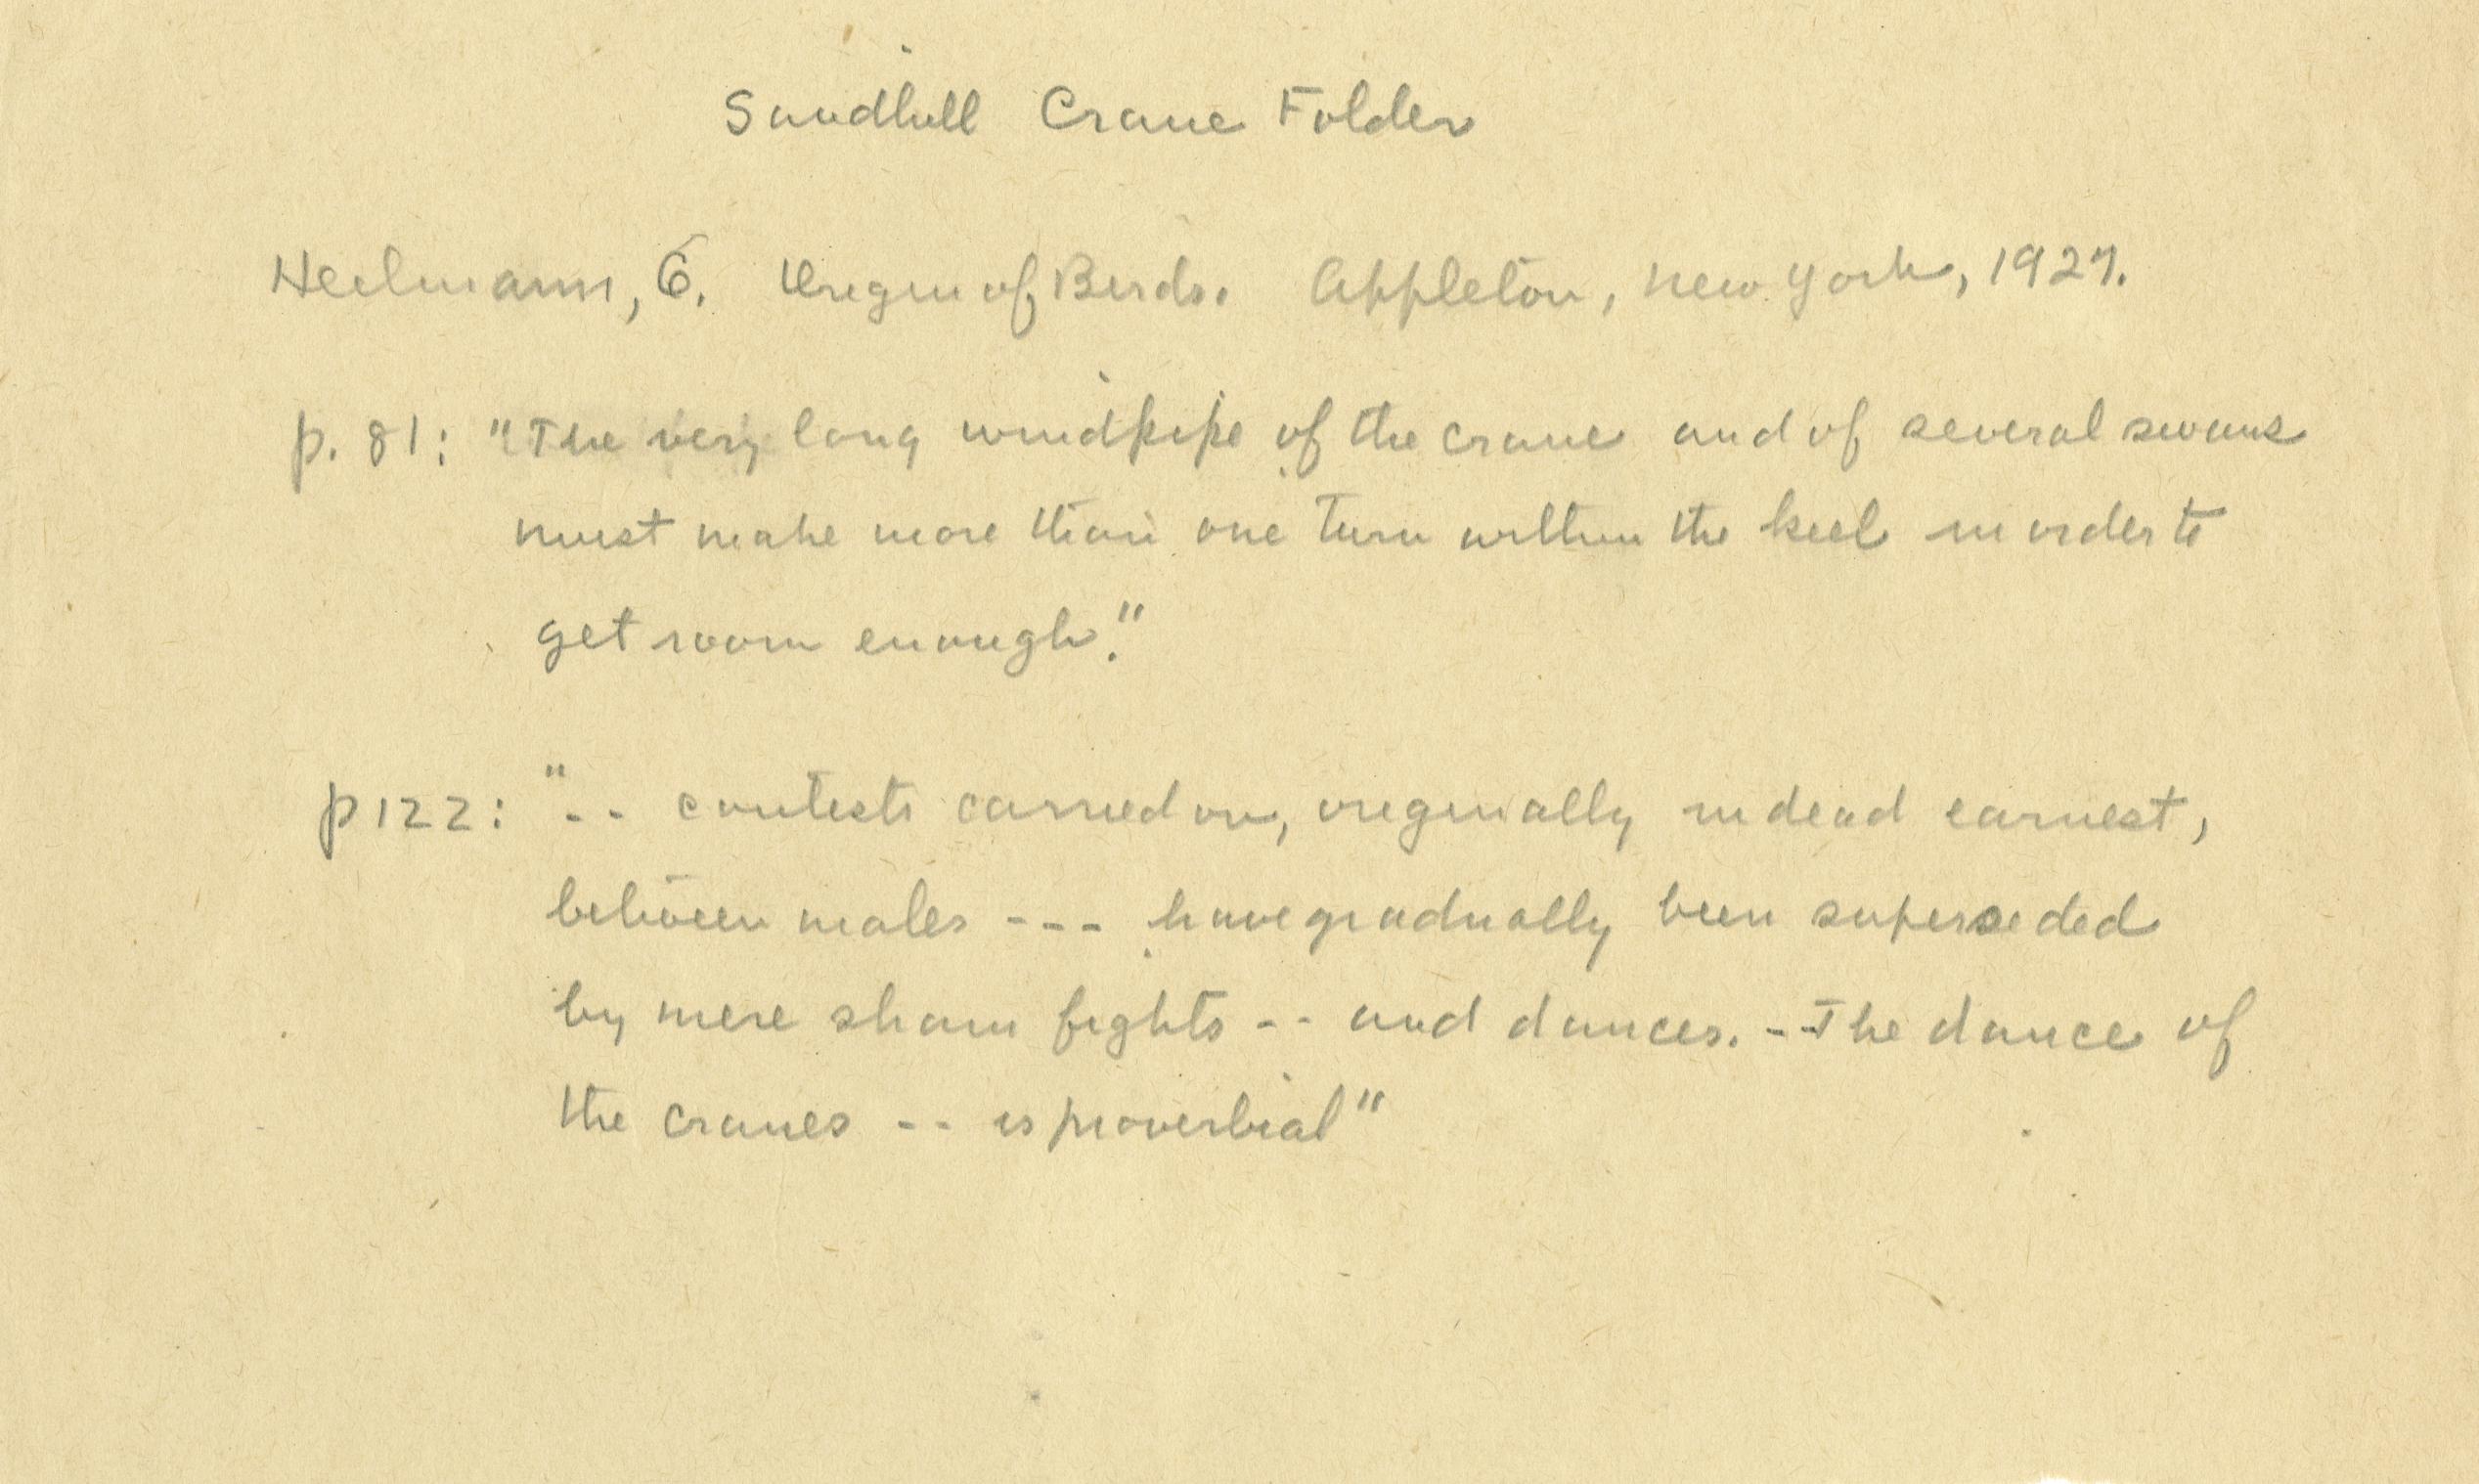 Sandhill Crane Folder
Heilmann, G. Origin of Birds. Appleton, New York, 1927.
p. 81: "The very long windpipe of the crane and of several swans
must make more than one turn within the keel in order to
get room enough."
p 122: "-- contests carried on, originally in dead earnest,
between males --- have gradually been superseded
by mere sham fights -- and dances. -- The dance of
the cranes -- is proverbial"